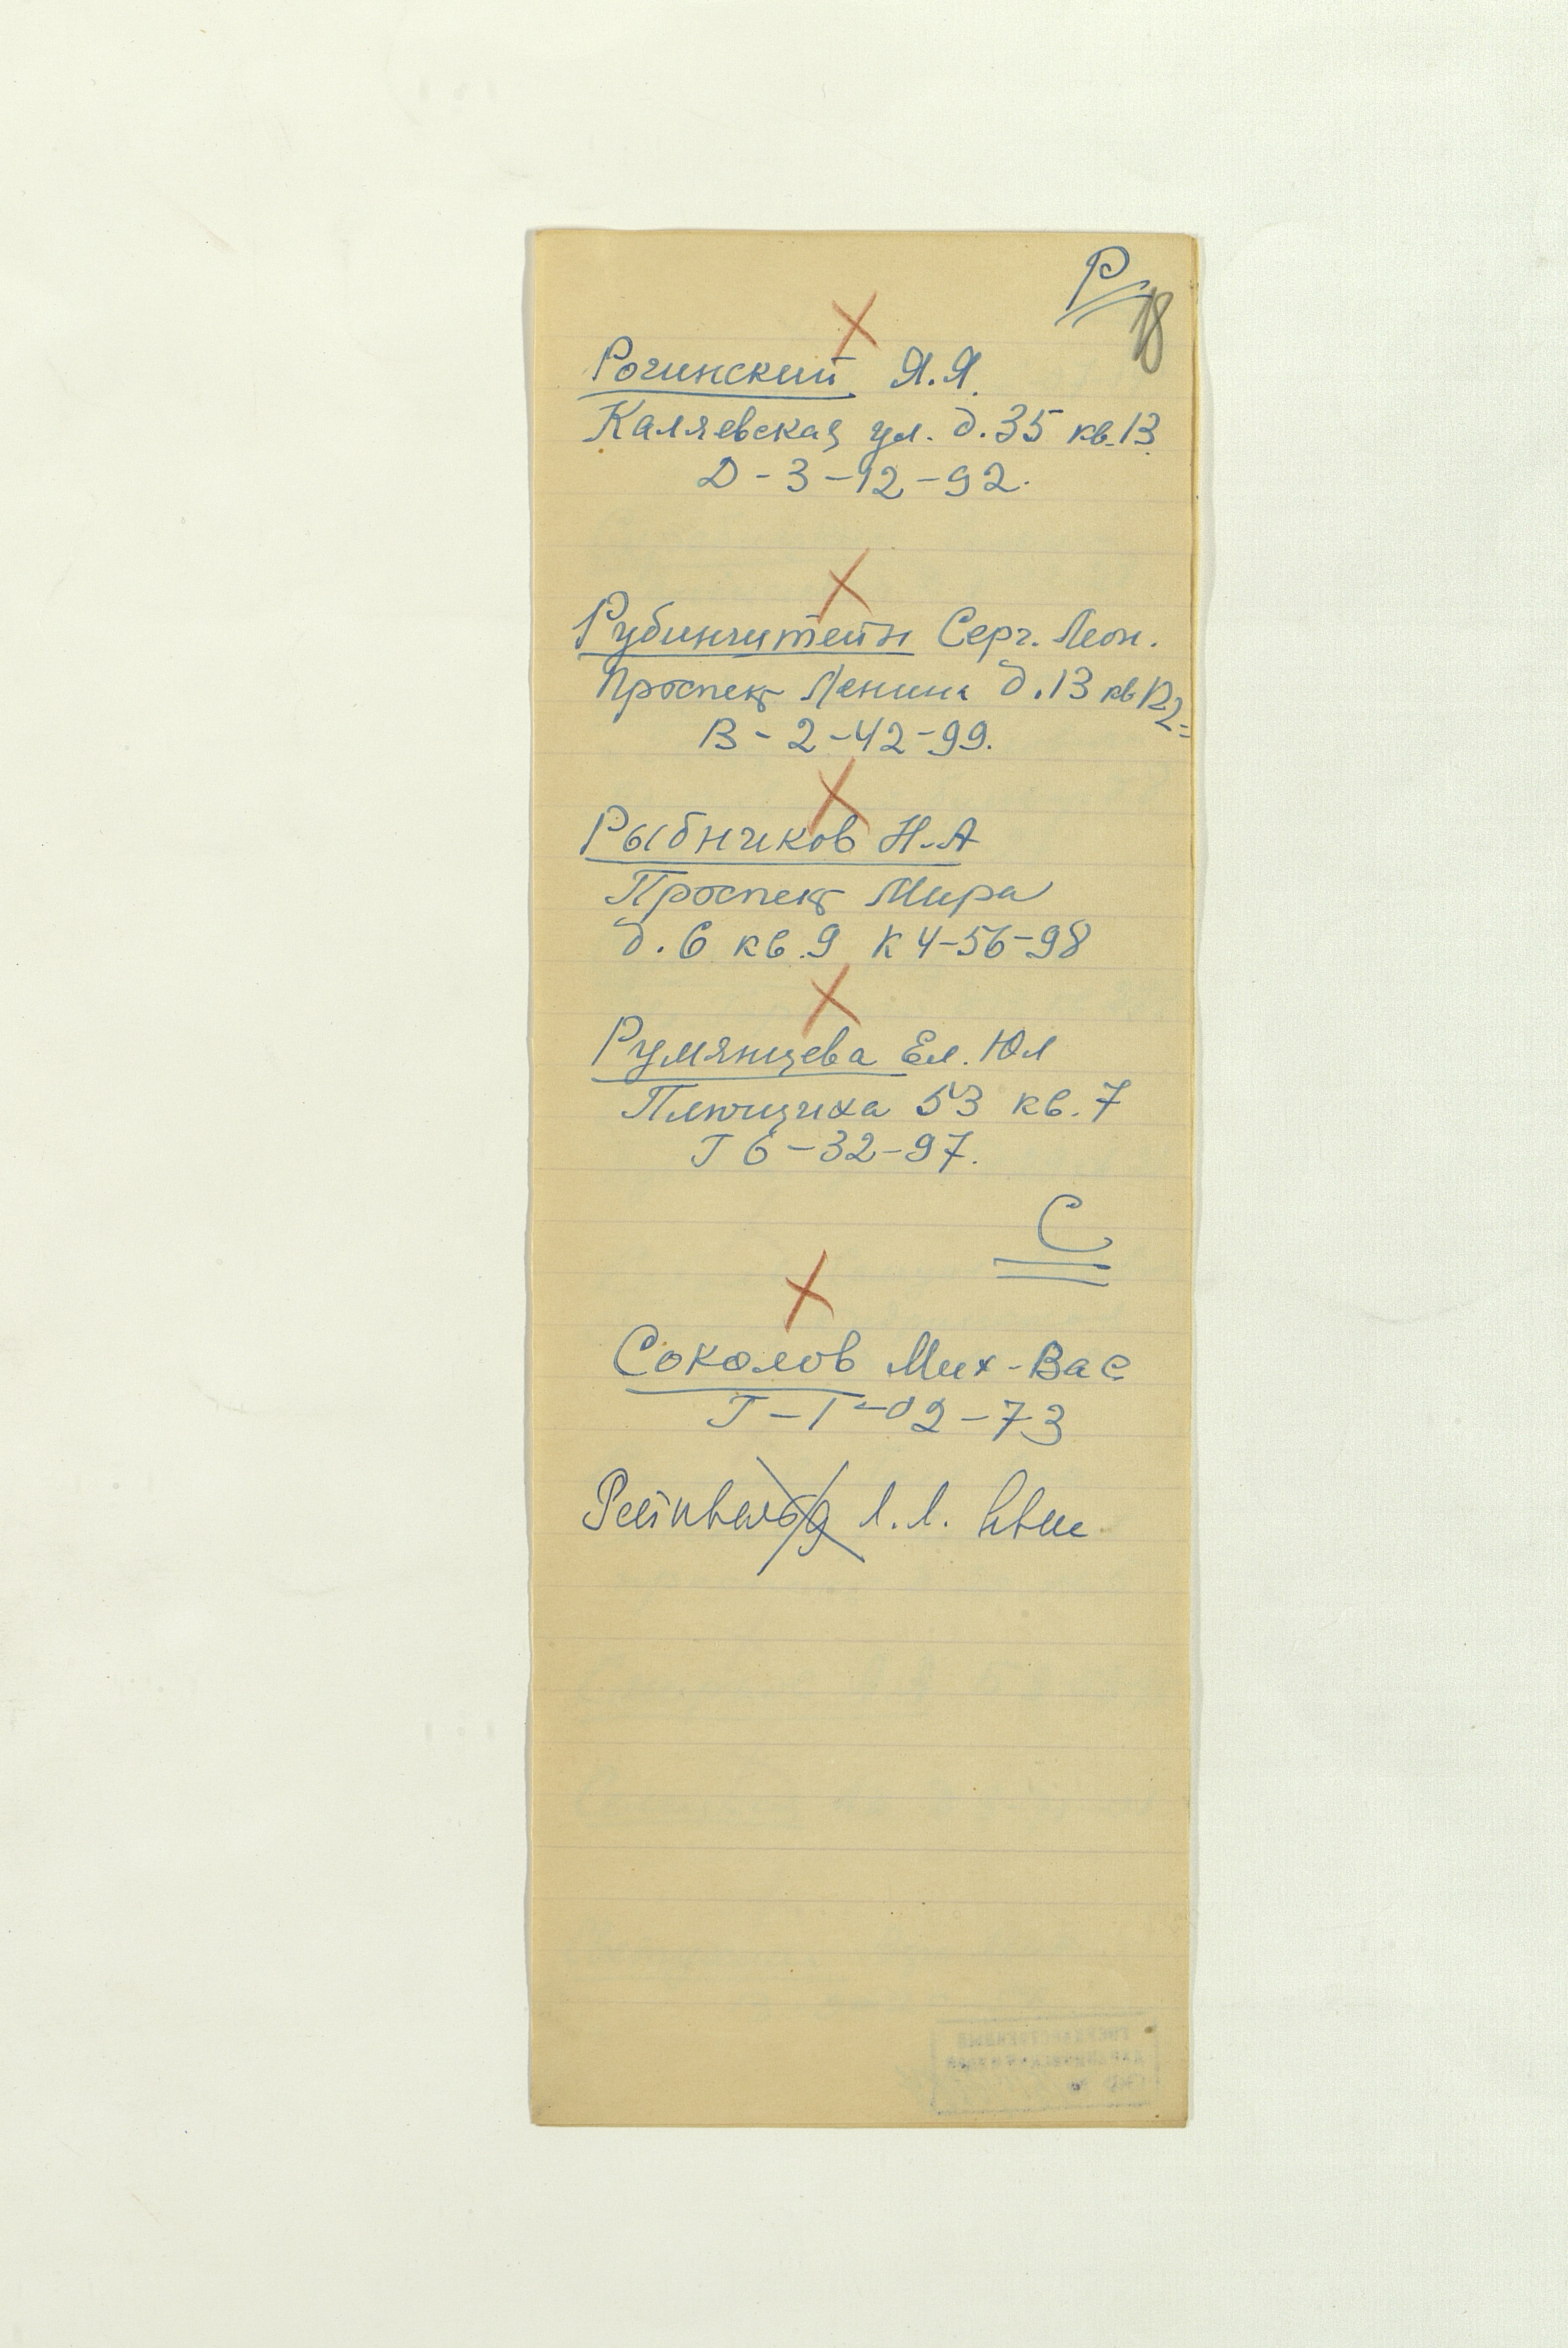 Р
18
Рогинский Я.Я.
Каляевская ул. д.35 кв.13
Д-3-12-92.
Рубинштейн Серг. Леон.
Проспект Ленина д.13 кв
В-2-42-99.
Рыбников Н.А
Проспект Мира
д.6 кв.9 К4-56-98
Румянцева Ел. Юл
Плющиха 53 кв.7
Г6-32-97.
С
Соколов Мих-Вас
Г-1-02-73
Л.Л.